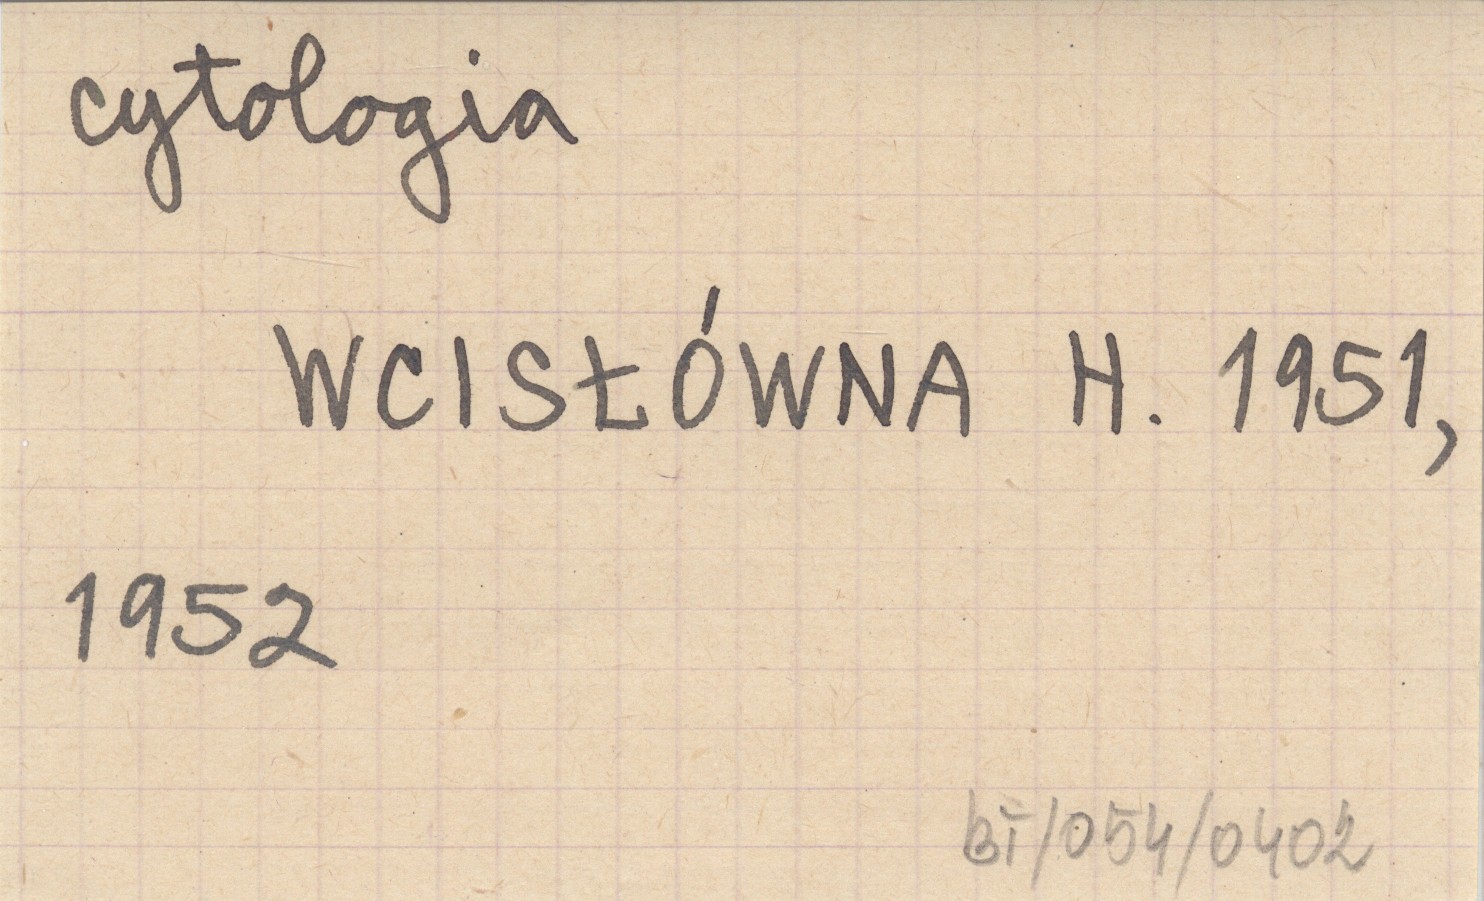 cytologia
WCISŁÓWNA H. 1951,
1952
BI/054/0402